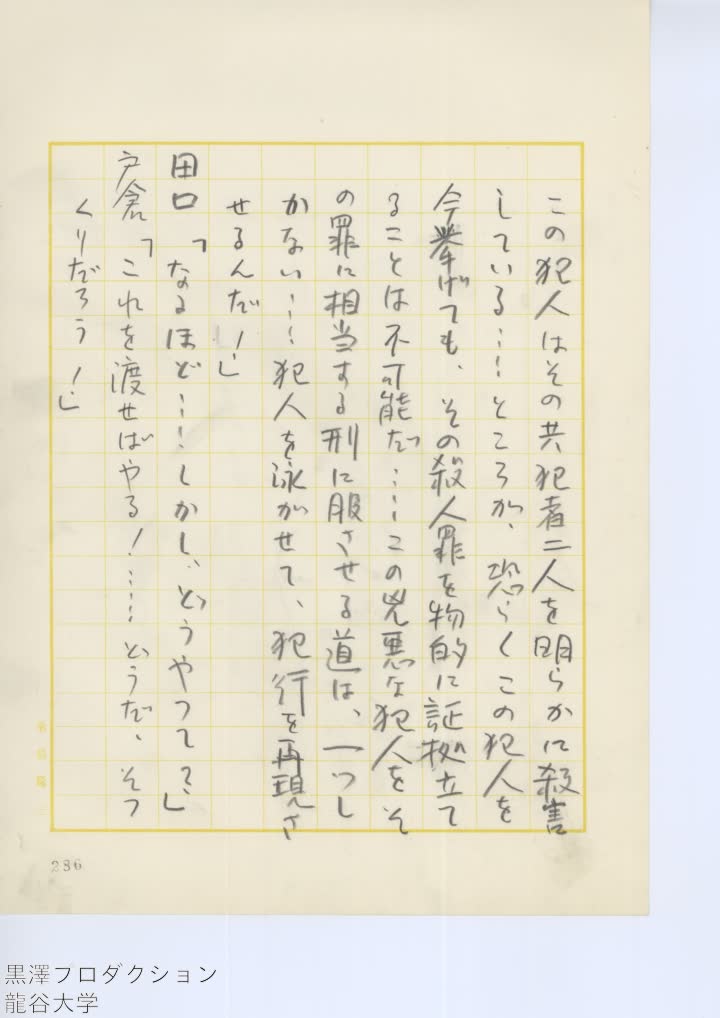 この犯人はその共犯者二人を明らかに殺害
している……ところが、恐らくこの犯人を
今挙げても、その殺人罪を物的に証拠立て
ることは不可能だ……この兇悪な犯人をそ
の罪に相当する刑に服させる道は、一つし
かない……犯人を泳がせて、犯行を再現さ
せるんだ！」
田口「なるほど……しかし、どうやって？」
戸倉「これを渡せばやる！……どうだ、そつ
くりだろう！」
286
黒澤プロダクション
龍谷大学